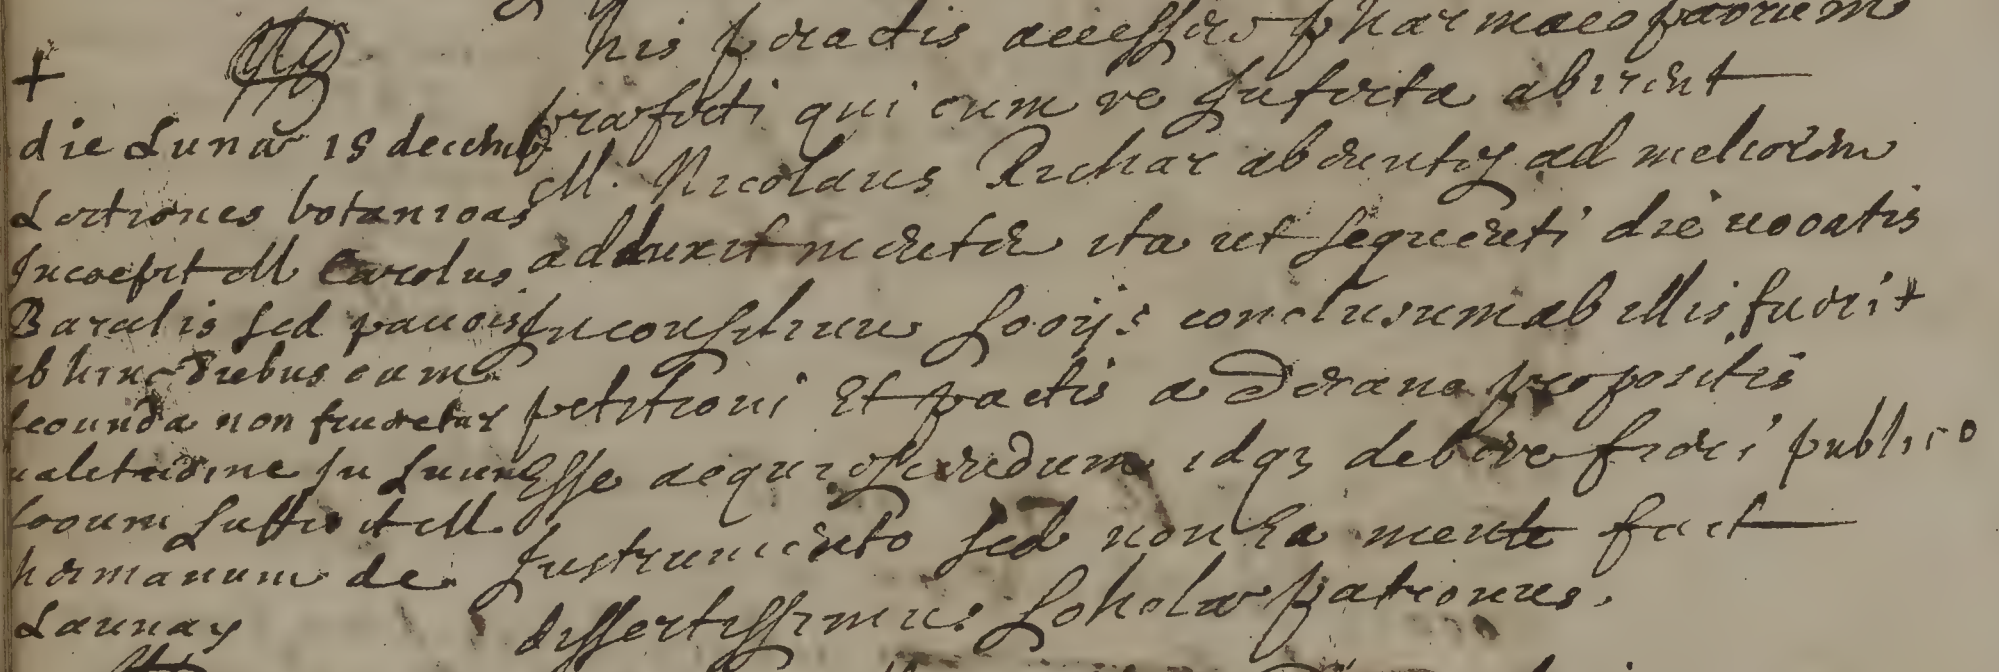 +
die Lunæ 18 decemb.
Lectiones botanicas
Incoepit M Carolus
Baralis sed paucis
ab hinc diebus cum
secunda non frueretur
valetudine In suum
locum suffecit M.
hermanum de
Launay
his peractis accessere pharmacopaeorum
praefecti qui cum re Infecta abirent
M. Nicolaus Richar abeuntes ad meliorem
adduxit mentem ita ut sequenti die vocatis
In consilium Socijs conclusum ab illis fuerit
petitioni Et pactis a Decano propositis
Esse acquiescendum idq3 debere fieri publico
Instrumento sed non Ea mente fuit
dissertissimus Scholae patronus.